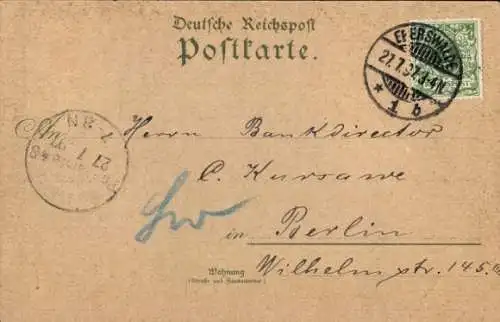 Deutsche Reichspost
Postkarte.
EBERSWALDE
27.7.97.3-4N.
* 1 b
7-8N
27 7
Herrn Bankdirector
C. Kursawe
in Berlin
Wohnung
(Straße und Hausnummer)
Wilhelm str. 145.